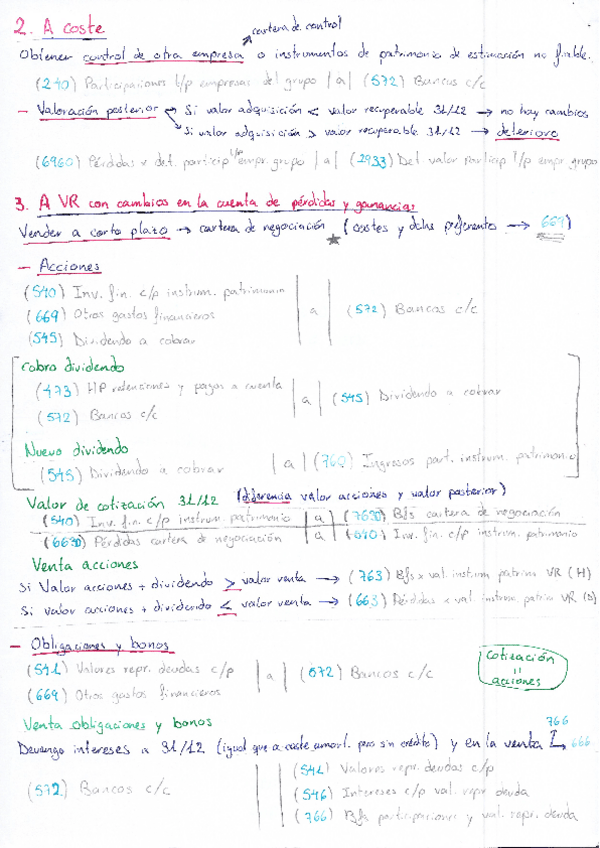 2. A coste
cartera de control
Obtener control de otra empresa o instrumentos de patrimonio de estimación no fiable.
(240) Participaciones l/p empresas del grupo | a | (572) Bancos c/c
- Valoración posterior Si valor adquisición < valor recuperable 31/12 → no hay cambios
Si valor adquisición > valor recuperable 31/12 → deterioro
(6960) Pérdidas x det. particip l/p empr. grupo | a | (2933) Det valor particip l/p empr. grupo
3. A VR con cambios en la cuenta de pérdidas y ganancias
Vender a corto plazo → cartera de negociación ★ (costes y dchos preferentes → 669)
- Acciones
(540) Inv. fin. c/p instrum. patrimonio
(669) Otros gastos financieros | a | (572) Bancos c/c
(545) Dividendo a cobrar
Cobro dividendo
(473) HP retenciones y pagos a cuenta | a | (545) Dividendo a cobrar
(572) Bancos c/c
Nuevo dividendo
(545) Dividendo a cobrar | a | (760) Ingresos part. instrum. patrimonio
Valor de cotización 31/12 (diferencia valor acciones y valor posterior)
(540) Inv. fin. c/p instrum. patrimonio | a | (7630) Bfs cartera de negociación
(6630) Pérdidas cartera de negociación | a | (540) Inv. fin. c/p instrum. patrimonio
Venta acciones
Si Valor acciones + dividendo > valor venta → (763) Bfs x val. instrum patrim VR (H)
Si valor acciones + dividendo < valor venta → (663) Pérdidas x val. instrum patrim VR (D)
- Obligaciones y bonos
(541) Valores repr. deudas c/p | a | (572) Bancos c/c
(669) Otros gastos financieros
Cotización
=
acciones
Venta obligaciones y bonos
766
Devengo intereses a 31/12 (igual que a coste amort. pero sin crédito) y en la venta 666
(572) Bancos c/c
(541) Valores repr. deudas c/p
(546) Intereses c/p val. repr deuda
(766) Bfs participaciones y val. repr. deuda